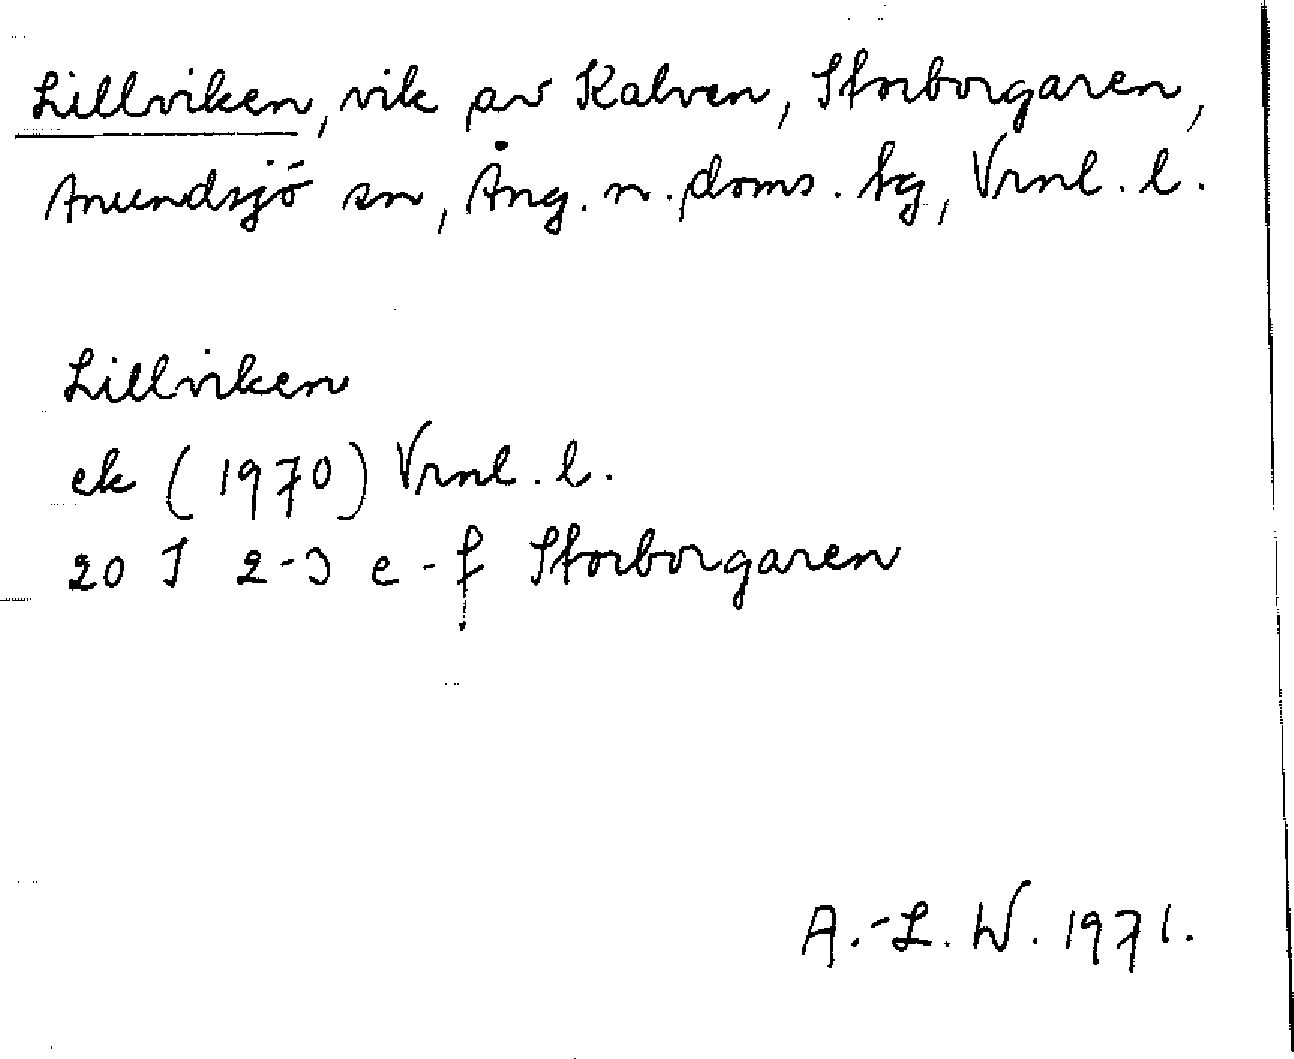 Lillviken, vik av Kalven, Storborgaren,
Anundsjö sn, Ång. n. doms. tg, Vrnl. l.
Lillviken
ek (1970) Vrnl. l.
20 I 2-3 e-f Storborgaren
A.-L. W. 1971.